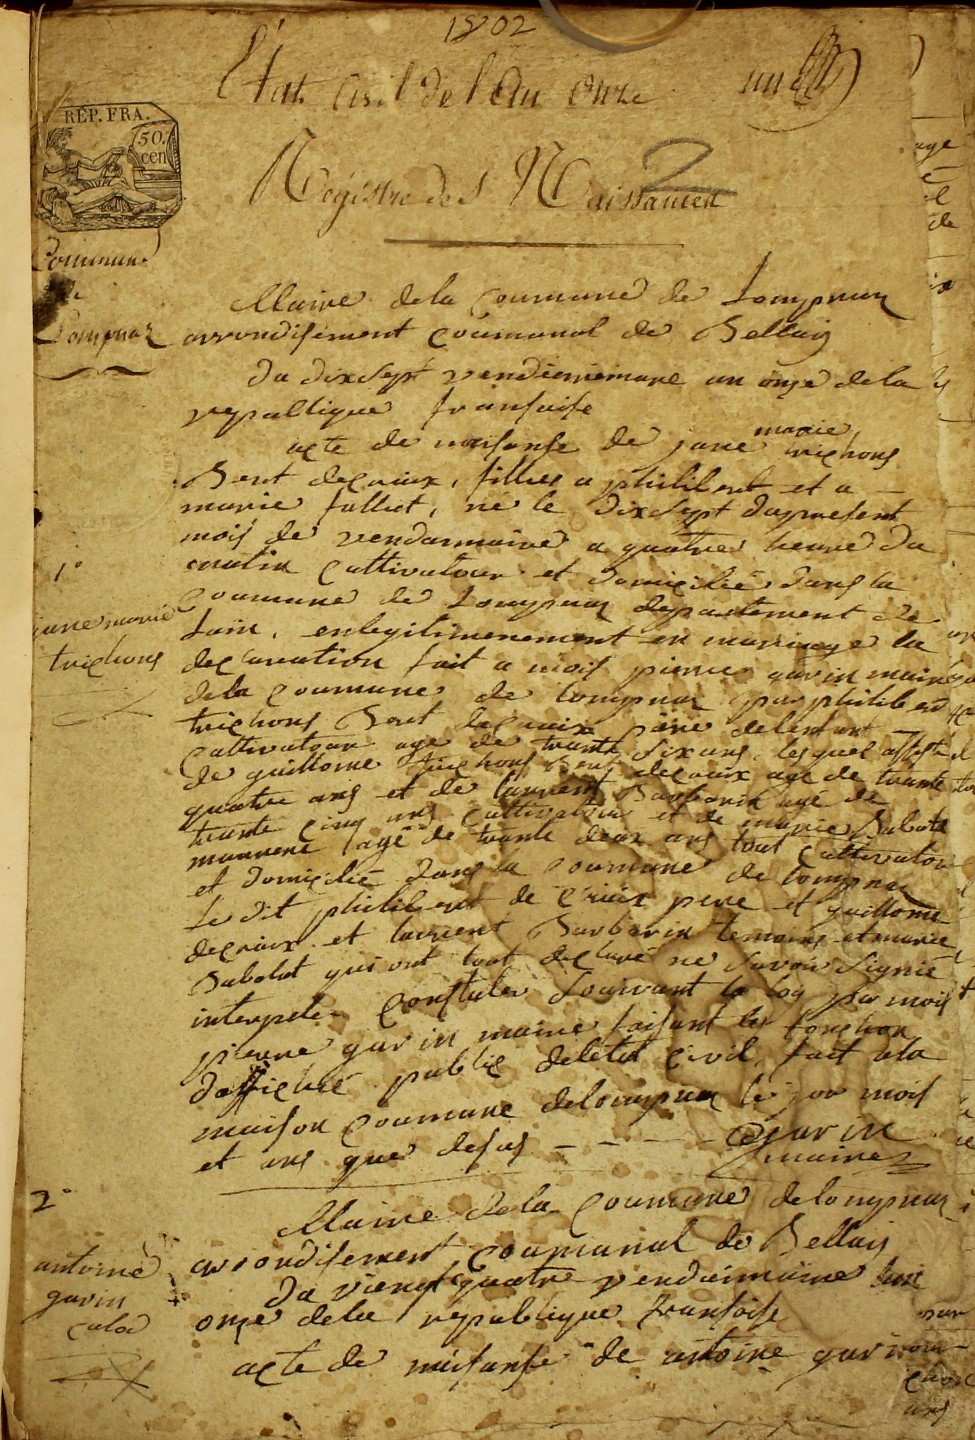 1802
Etat Civil de l'an Onze
REP. FRA.
50.
cen
Regístre des Naissances
Commune
de
Lompnaz
Maire de la Coumune de Lompnaz
arrondisement Coumunal de Bellay
du dixsept vendiemiemare an onze de la
republique fransaise
acte de naisanse de jane marie trichons
Bent decroix, filles a philibert et a
marie falliet, né le dixsept du present
mois de vendarmaire a quatre heure du
matin Cultivatour et domicilié dans la
1°
jane marie
trichons
Coumune de Lompnaz departement de
Lain, enlegitimenement en marriage la
declaration fait a mois pierre garin maire
dela Coumune de lompnaz par philibert
trichons Bent decroix père delenfant
Cultivatour age de trante six ans, lesquel assisté
de guillome trichons Bent decroix age de trante
quatre ans et de laurent Barbarin agé de
trante cinq ans Cultivateur et de marie Babolat
agé de trante deux ans tout Cultivatour
et domicilié dans la Coumune de lompnaz
le dit philibert de Croix pere et guillome
decroix et laurent Barbarin temoins et marie
Babolat qui ont tout declaré ne savoir signié
interpele Constater souivant la loy par mois
pierre garin maire faisant les fonction
dofficier public deletat Civil, fait ala
maison Coumune delompnaz le jour mois
et ans que desus - - - - garin
maire
2°
Maire dela Coumune delompnaz
arrondisement Coumunal de Bellais
antoine
garin
du viengtquatre vendiemaire lan
onze dela republique fransoise
acte de naisanse de antoine garin